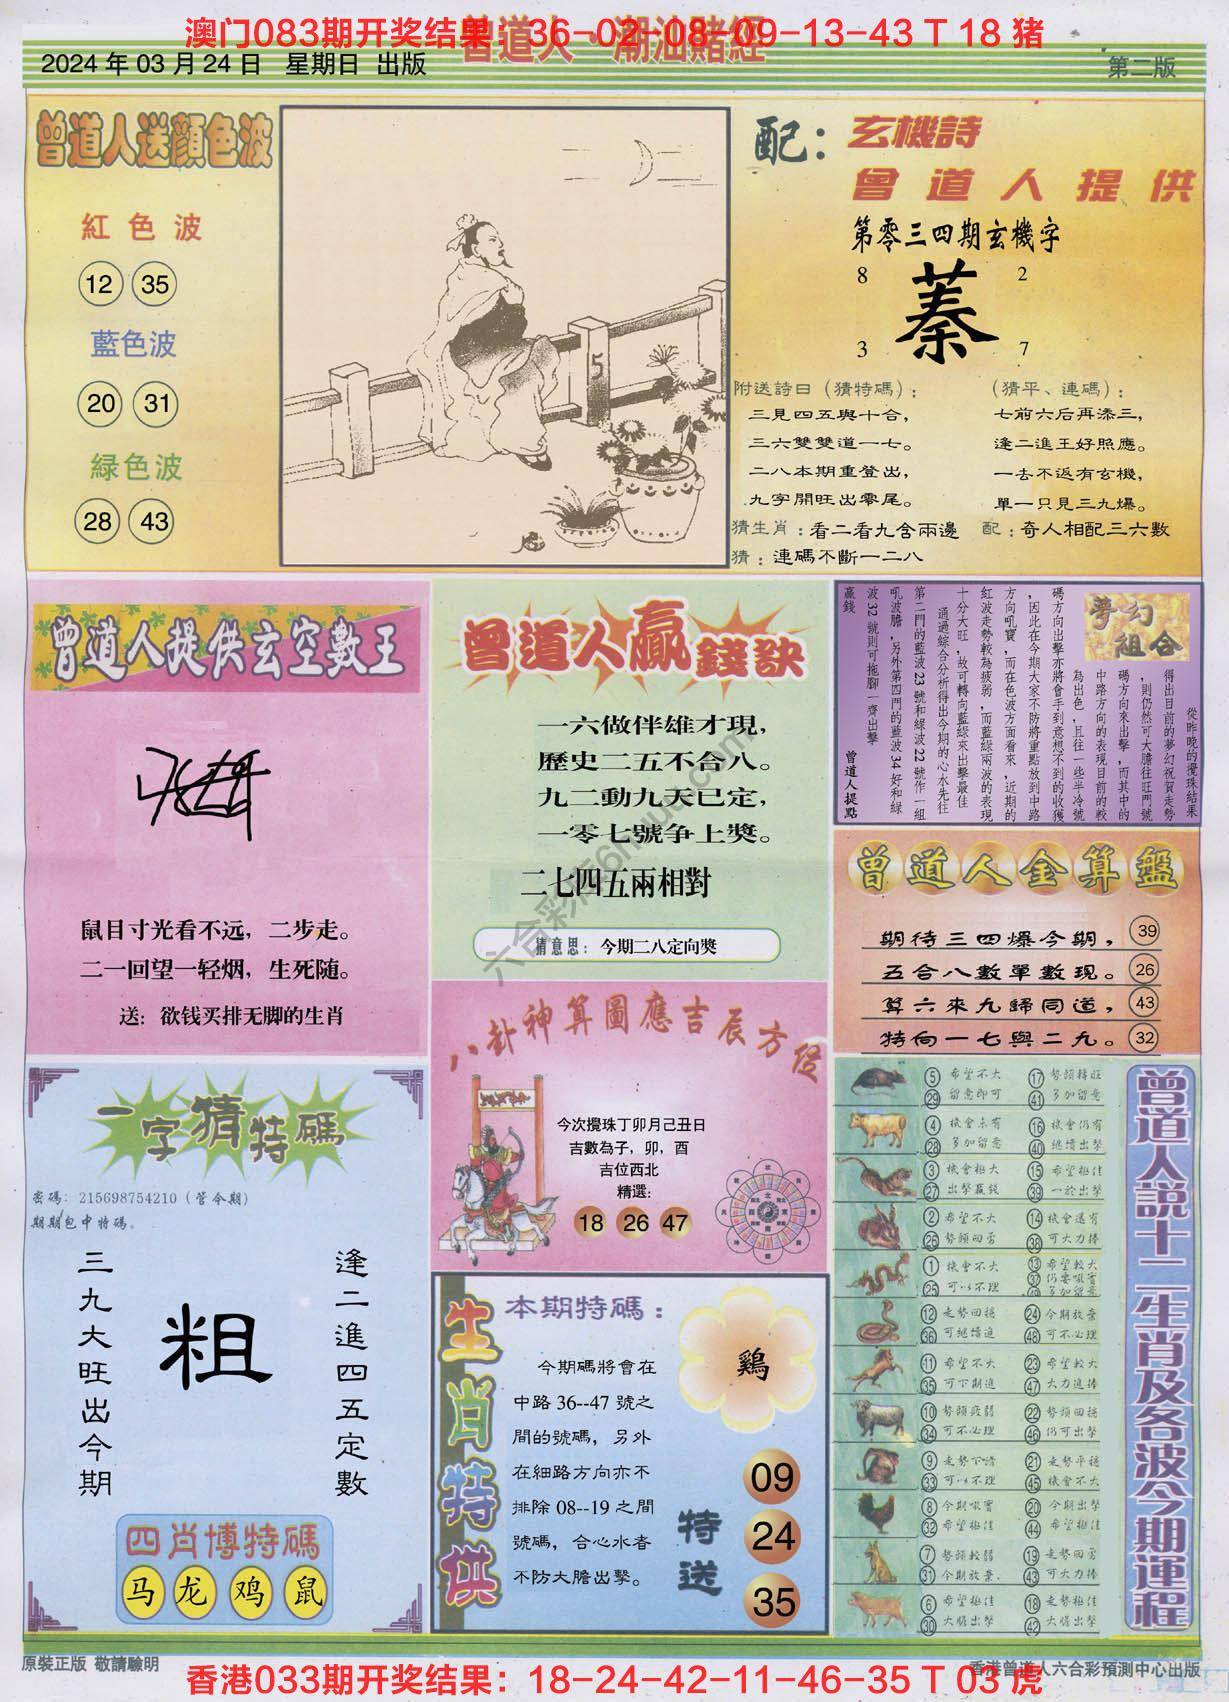 澳门083期开奖结果：36-02-08-09-13-43 T 18 猪
曾道人·潮汕賭經
2024 年 03 月 24 日 星期日 出版
第二版
曾道人送顔色波
紅色波
12 35
藍色波
20 31
緑色波
28 43
5
配：玄機詩
曾道人提供
第零三四期玄機字
8 2
蓁
3 7
附送詩曰（猜特碼）：
三見四五與十合，
三六雙雙道一七。
二八本期重登出，
九字開旺出零尾。
（猜平、連碼）：
七前六后再添三，
逢二進王好照應。
一去不返有玄機，
單一只見三九爆。
猜生肖：看二看九含兩邊
配：奇人相配三六數
猜：連碼不斷一二八
曾道人提供玄空數王
鼠目寸光看不远，二步走。
二一回望一轻烟，生死随。
送：欲钱买排无脚的生肖
曾道人贏錢訣
一六做伴雄才現，
歷史二五不合八。
九二動九天已定，
一零七號争上獎。
二七四五兩相對
猜意思：今期二八定向獎
夢幻組合
從昨晚的攪珠結果
得出目前的夢幻祝賀走勢
，則仍然可大膽往旺門號
碼方向來出擊，而其中的
中路方向的表現目前的較
為出色，且往一些半冷號
碼方向出擊亦將會手到意想不到的收獲
，因此在今期大家不防將重點放到中路
方向吼寶，而在色波方面看來，近期的
紅波走勢較為疲弱，而藍綠兩波的表現
十分大旺，故可轉向藍綠來出擊最佳
通過綜合分析得出今期的心水先往
第二門的藍波 23 號和綠波 22 號作一組
吼波膽，另外第四門的藍波 34 好和綠
波 32 號則可拖腳一齊出擊
贏錢
曾道人提點
曾道人金算盤
期待三四爆今期， 39
五合八數單數現。 26
算六來九歸同道， 43
特向一七與二九。 32
八卦神算圖應吉辰方位
今次攪珠丁卯月己丑日
吉數為子，卯，酉
吉位西北
精選：
18 26 47
一字猜特碼
密碼：215698754210（管今期）
期期包中特碼。
三九大旺出今期
粗
逢二進四五定數
四肖博特碼
马 龙 鸡 鼠
生肖特供
本期特碼：
鷄
今期碼將會在
中路 36--47 號之
間的號碼，另外
在細路方向亦不
排除 08--19 之間
號碼，合心水者
不防大膽出擊。
特送
09
24
35
曾道人説十二生肖及各波今期運程
5 29 希望不大 留意即可 17 41 勢頭轉旺 多加留意
4 28 機會未有 多加留意 16 40 機會仍有 继續出擊
3 27 機會极大 出擊贏錢 15 39 希望极佳 一於出擊
2 26 希望不大 勢頭回勇 14 38 機會還有 可大力捧
1 25 機會不大 可以不理 13 37 49 希望較大
12 36 走勢回穩 可继續追 24 48 今期放棄 可不必理
11 35 希望不大 可下期進 23 47 希望較大 大力追捧
10 34 勢頭疲弱 可不必理 22 46 勢頭回穩 仍可出擊
9 33 走勢下滑 可以不理 21 45 走勢平穩 機會不大
8 32 今期吼寶 希望极佳 20 44 今期出擊 希望极佳
7 31 勢頭較弱 今期放棄、 19 43 走勢回勇 可大力捧
6 30 希望极佳 大膽出擊 18 42 走勢极佳 大膽出擊
六合彩库6hmuc.com
原裝正版 敬請驗明
香港曾道人六合彩預測中心出版
香港033期开奖结果：18-24-42-11-46-35 T 03 虎